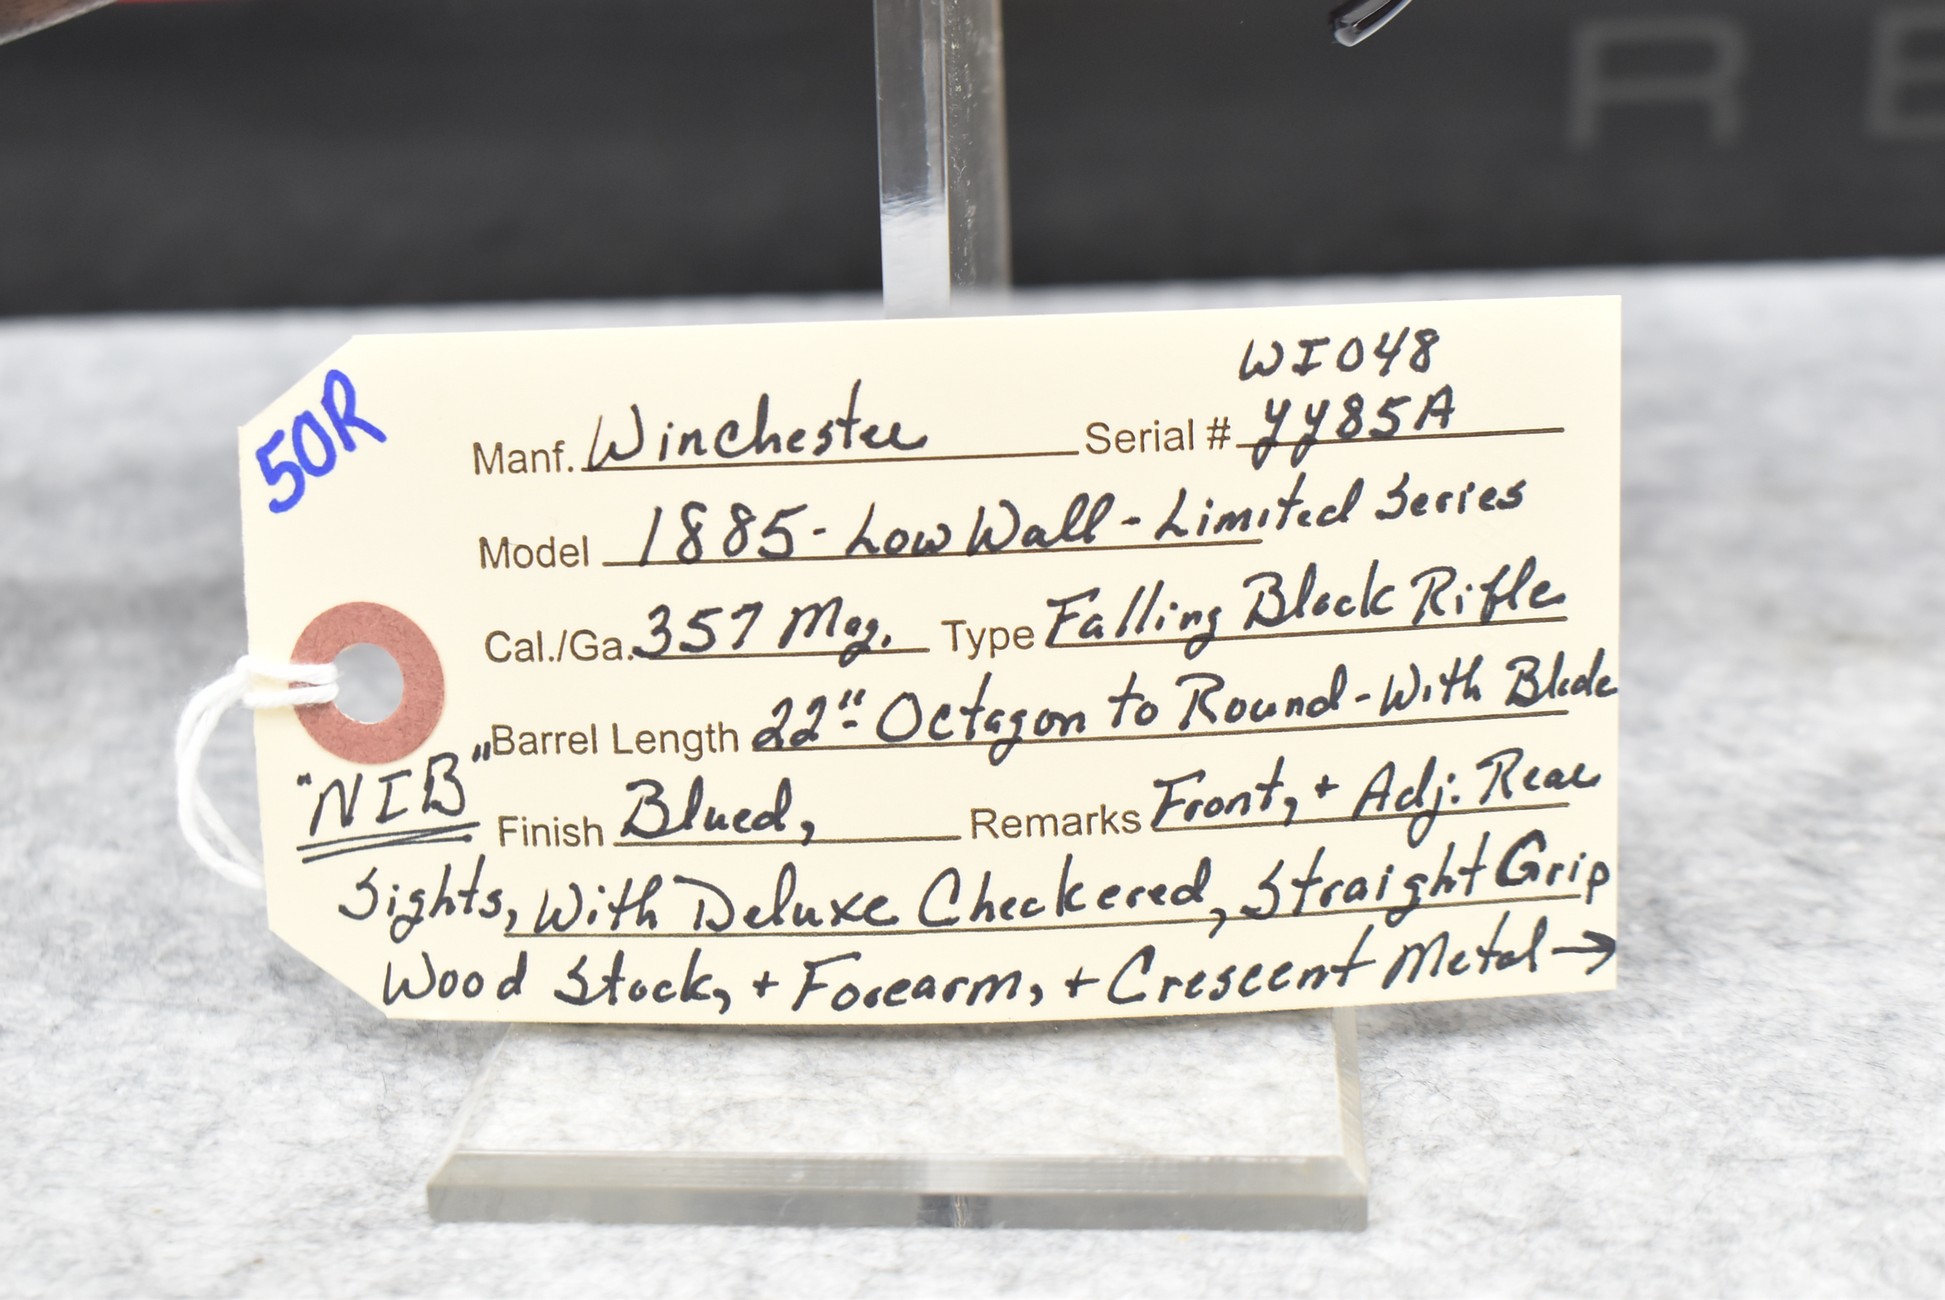 R E
50R
WI048
Manf. Winchester Serial # YY85A
Model 1885 - Low Wall - Limited Series
Cal./Ga. 357 Mag. Type Falling Block Rifle
Barrel Length 22" Octagon to Round - With Blade
"NIB" Finish Blued, Remarks Front, + Adj. Rear
Sights, With Deluxe Checkered, Straight Grip
Wood Stock, + Forearm, + Crescent Metal →